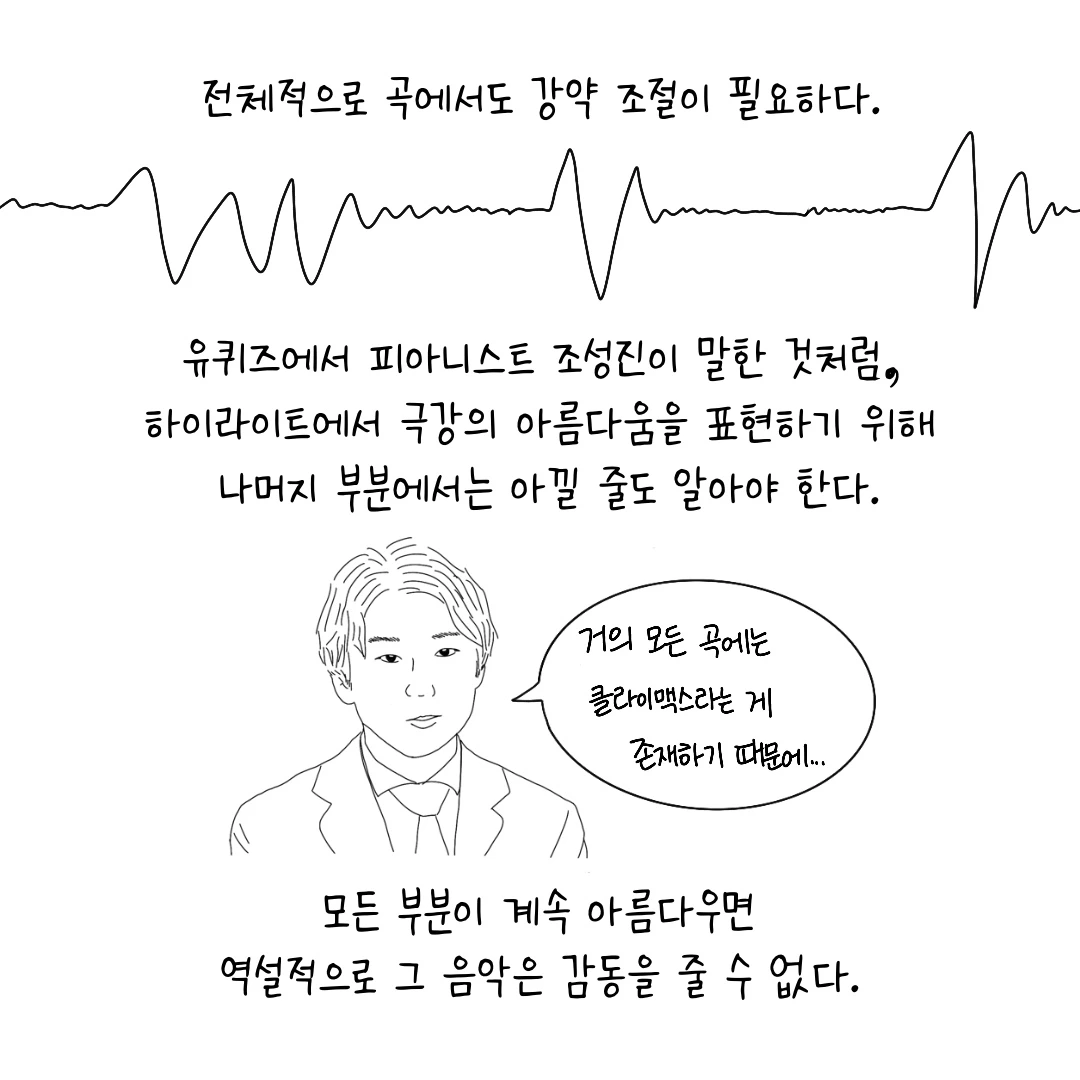 전체적으로 곡에서도 강약 조절이 필요하다.
유퀴즈에서 피아니스트 조성진이 말한 것처럼,
하이라이트에서 극강의 아름다움을 표현하기 위해
나머지 부분에서는 아낄 줄도 알아야 한다.
거의 모든 곡에는
클라이맥스라는 게
존재하기 때문에...
모든 부분이 계속 아름다우면
역설적으로 그 음악은 감동을 줄 수 없다.